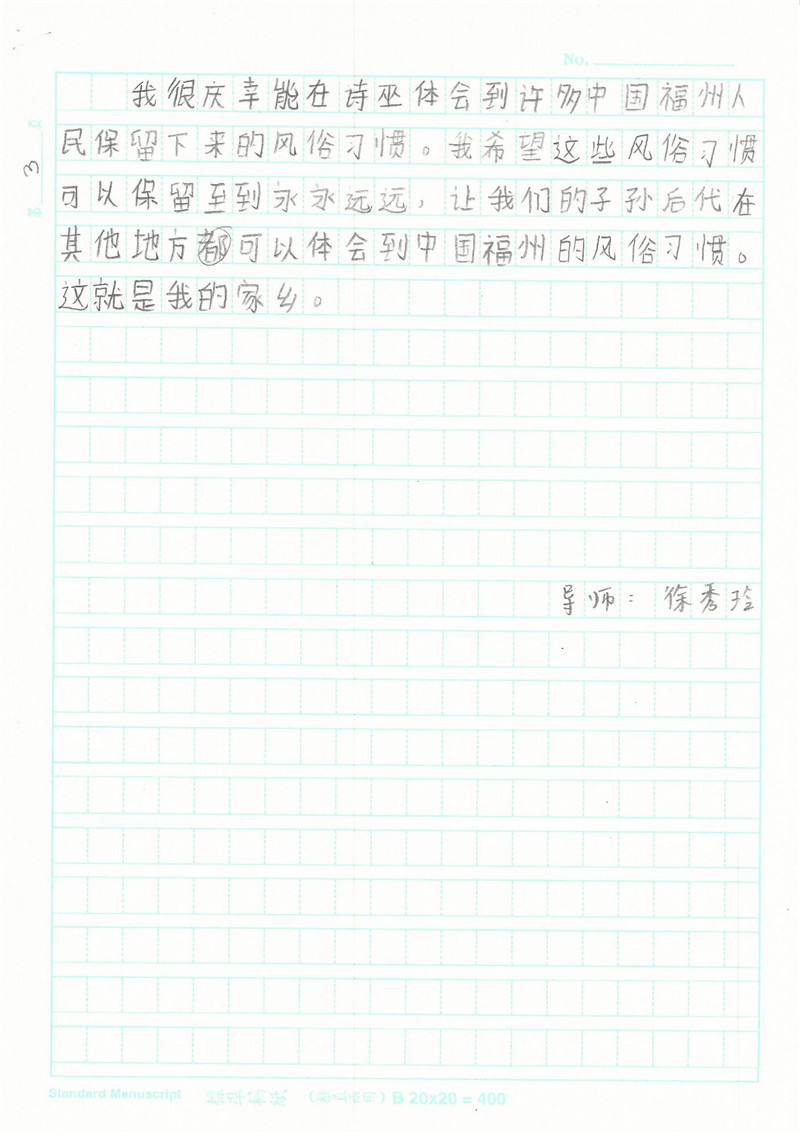 No.
我很庆幸能在诗巫体会到许多中国福州人
民保留下来的风俗习惯。我希望这些风俗习惯
可以保留至到永永远远，让我们的子孙后代在
其他地方都可以体会到中国福州的风俗习惯。
这就是我的家乡。
3
导师：徐秀玲
Standard Manuscript
B 20x20 = 400